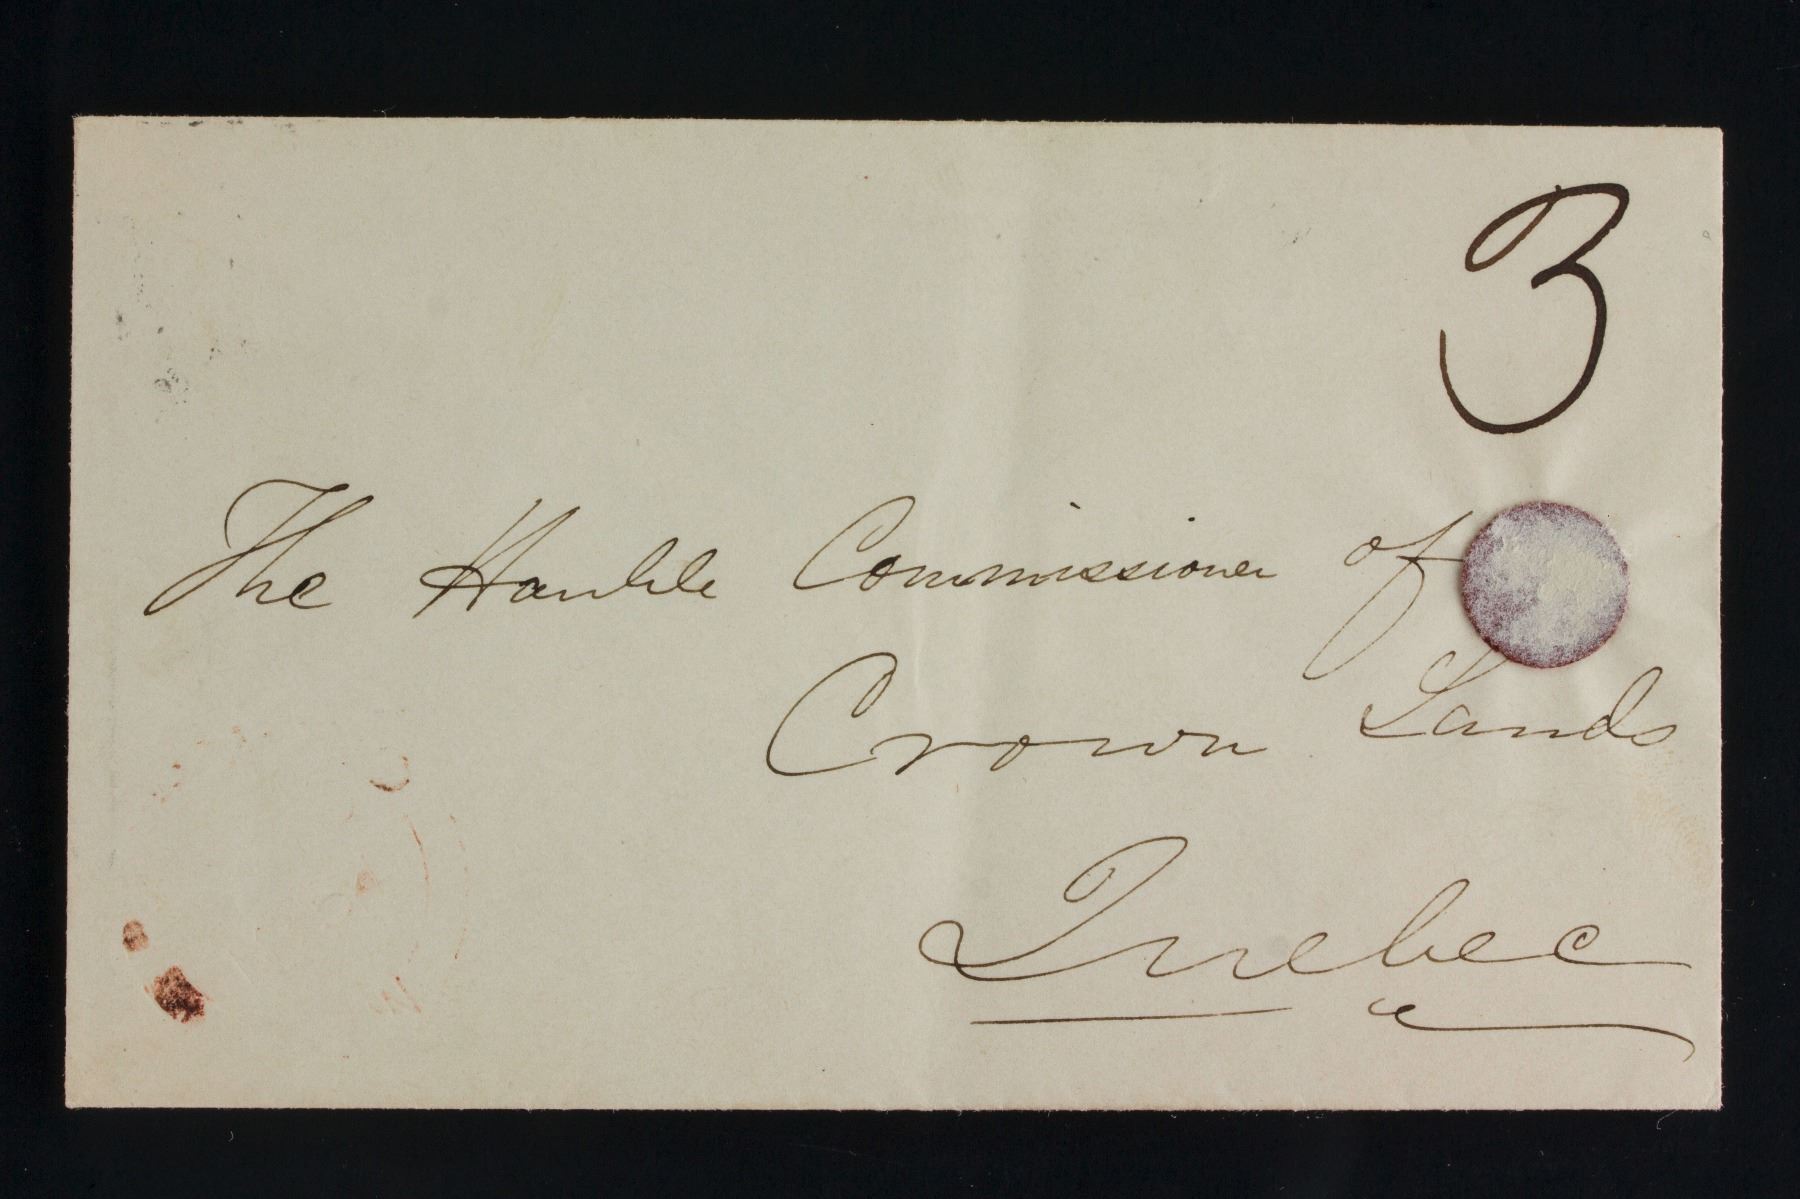 3
The Honble Commissioner of
Crown Lands
Quebec